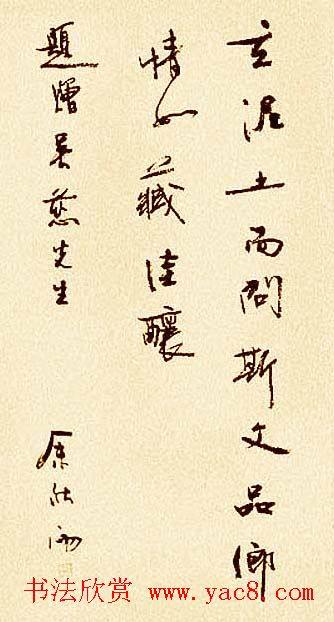 立泥土而問斯文品鄉
情如藏佳釀
題贈吴慈先生
余秋雨
书法欣赏 www.yac8.com